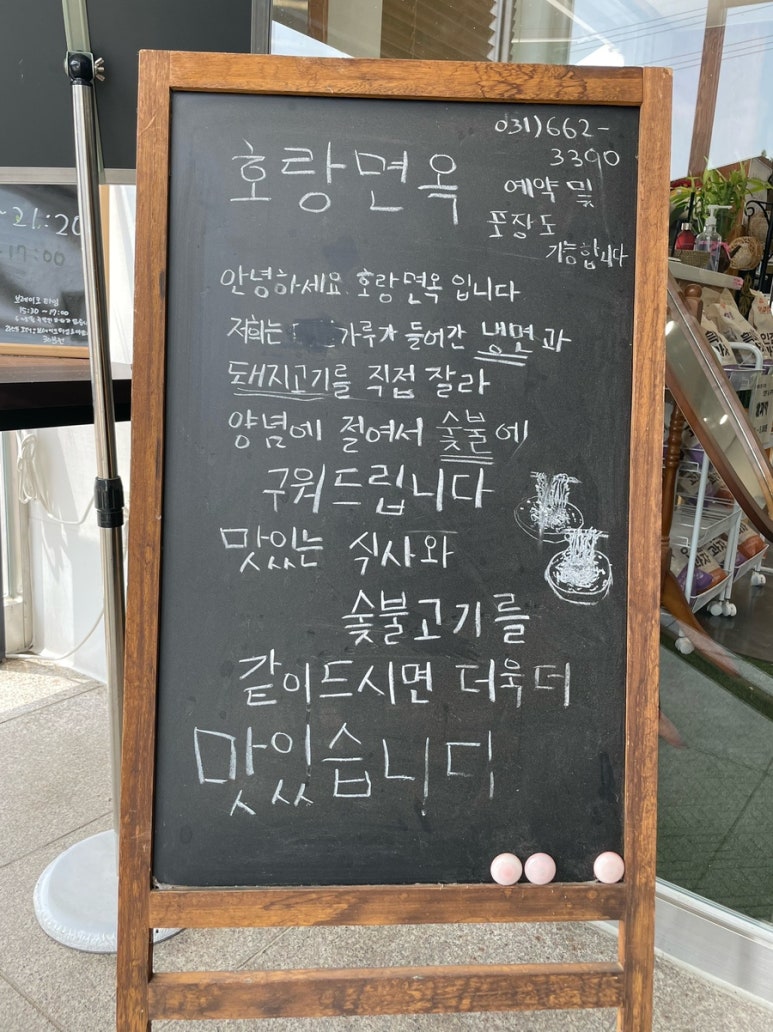 호랑면옥
031)662-
3390
예약 및
포장도
가능합니다
안녕하세요 호랑면옥 입니다
저희는 가루가 들어간 냉면과
돼지고기를 직접 잘라
양념에 절여서 숯불에
구워드립니다
맛있는 식사와
숯불고기를
같이드시면 더욱더
맛있습니다
~21:20
17:00
브레이크 타임
15:30 ~ 17:00